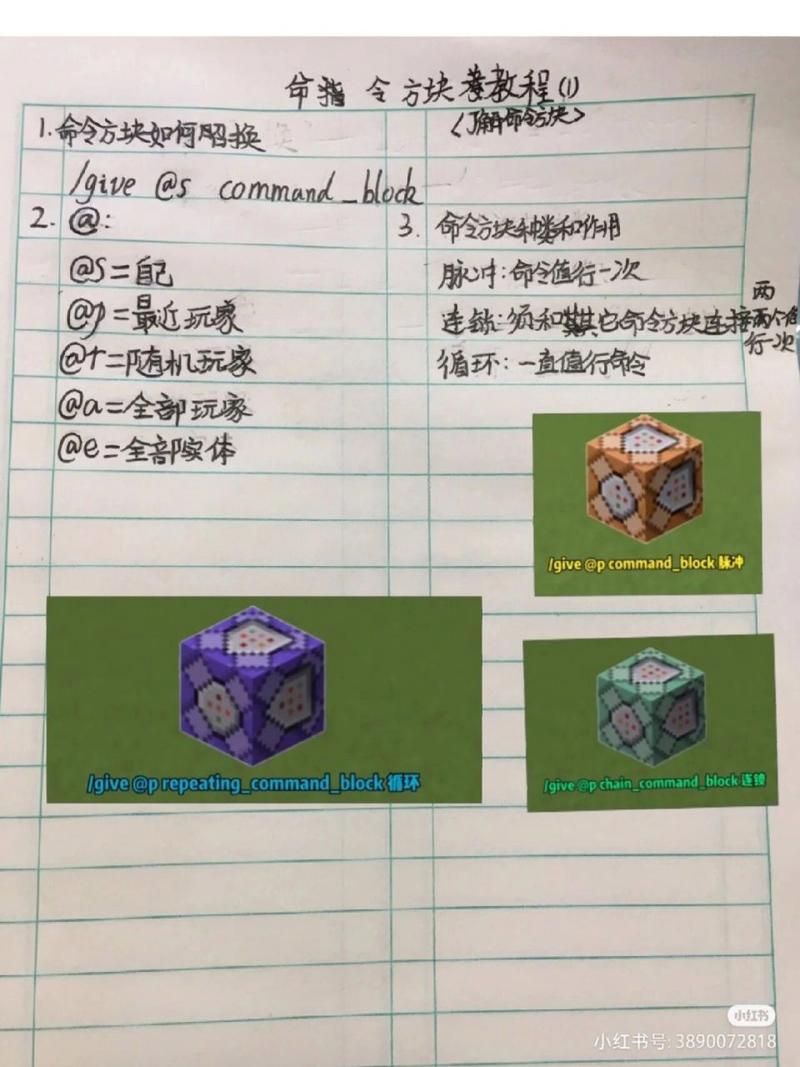 命令方块教程(1)
<了解命令方块>
1.命令方块如何昭换
/give @s command_block
2. @:
@s=自己
@p=最近玩家
@r=随机玩家
@a=全部玩家
@e=全部实体
3. 命令方块种类和作用
脉冲:命令值行一次
连锁:须和其它命令方块连接两个值
两
行一次
循环:一直值行命令
/give @p command_block 脉冲
/give @p repeating_command_block 循环
/give @p chain_command_block 连锁
小红书
小红书号: 3890072818